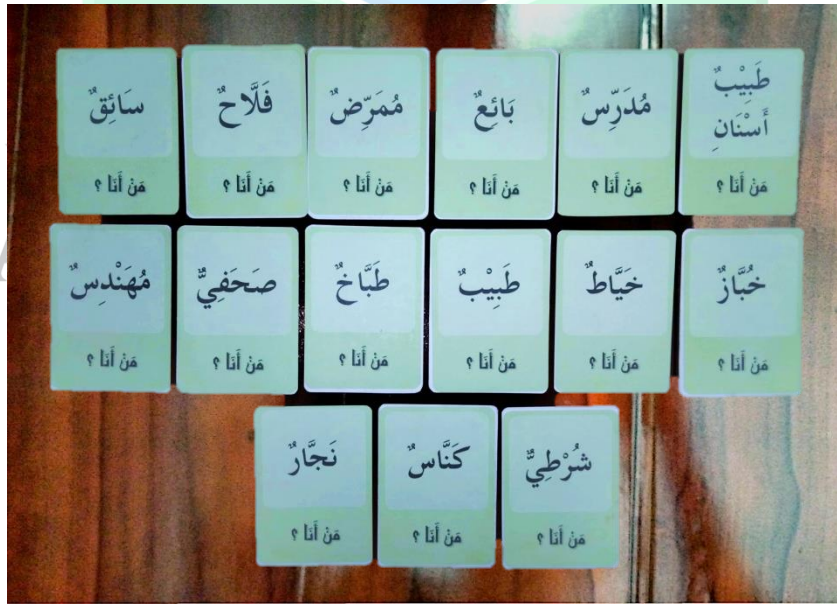 طَبِيْبُ
أَسْنَانٍ
مَنْ أَنَا ؟
مُدَرِّسٌ
مَنْ أَنَا ؟
بَائِعٌ
مَنْ أَنَا ؟
مُمَرِّضٌ
مَنْ أَنَا ؟
فَلَّاحٌ
مَنْ أَنَا ؟
سَائِقٌ
مَنْ أَنَا ؟
خُبَّازٌ
مَنْ أَنَا ؟
خَيَّاطٌ
مَنْ أَنَا ؟
طَبِيْبٌ
مَنْ أَنَا ؟
طَبَّاخٌ
مَنْ أَنَا ؟
صَحَفِيٌّ
مَنْ أَنَا ؟
مُهَنْدِسٌ
مَنْ أَنَا ؟
شُرْطِيٌّ
مَنْ أَنَا ؟
كَنَّاسٌ
مَنْ أَنَا ؟
نَجَّارٌ
مَنْ أَنَا ؟